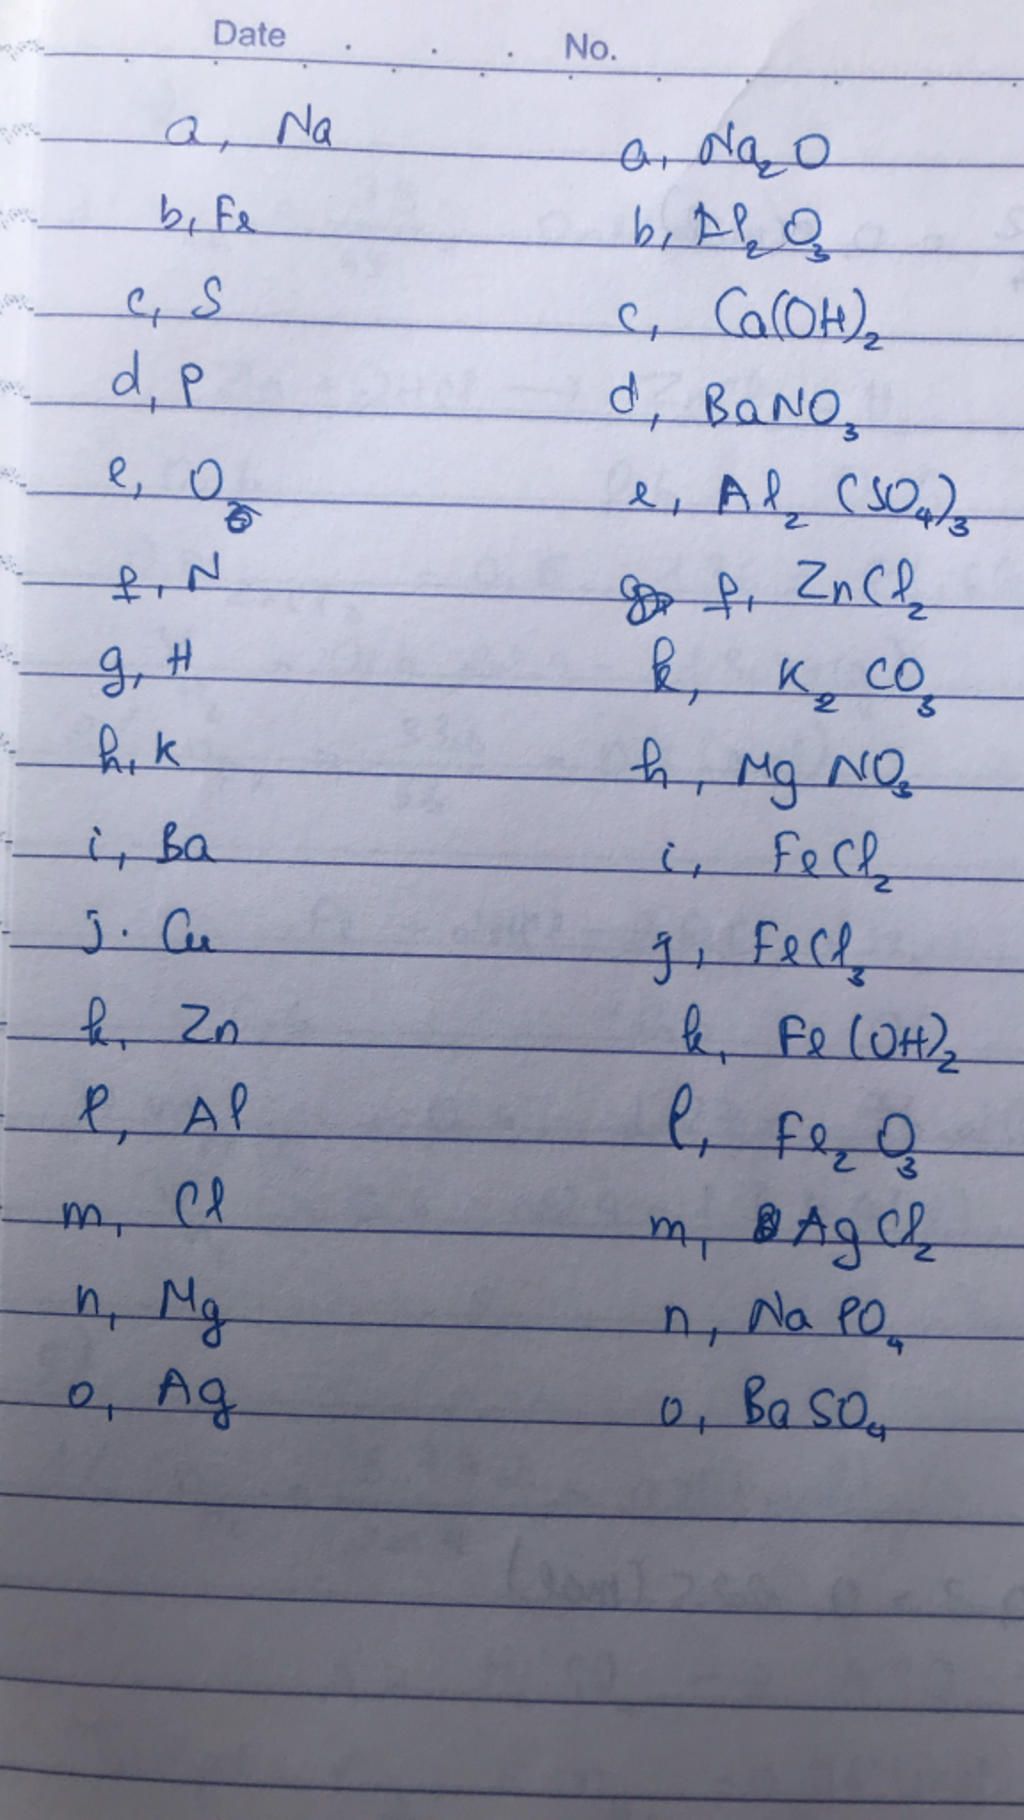 Date . . . No.
a, Na
b, Fe
c, S
d, P
e, O
f, N
g, H
h, K
i, Ba
j. Cu
k, Zn
l, Al
m, Cl
n, Mg
o, Ag
a, Na₂O
b, Al₂O₃
c, Ca(OH)₂
d, BaNO₃
e, Al₂ (SO₄)₃
f, ZnCl₂
k, K₂ CO₃
h, Mg NO₃
i, FeCl₂
j, FeCl₃
k, Fe (OH)₂
l, Fe₂ O₃
m, AgCl₂
n, Na PO₄
o, BaSO₄